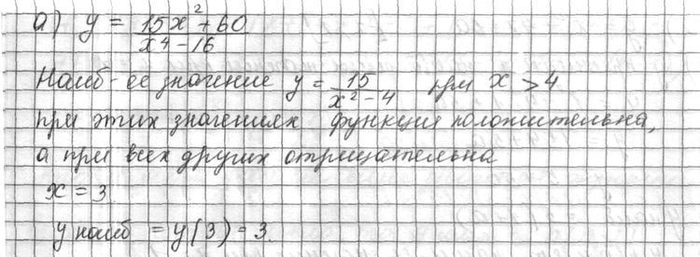 а) y = (15x² + 60)/(x⁴ - 16)
Наиб-ее значение y = 15/(x² - 4) при x > 4
при этих значениях функция положительна,
а при всех других отрицательна
x = 3
y наиб = y(3) = 3.